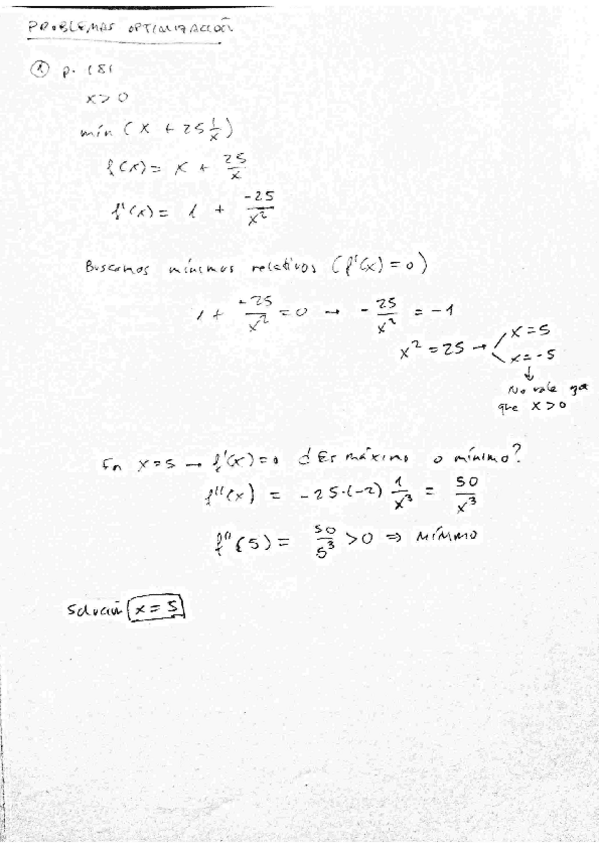 PROBLEMAS OPTIMIZACIÓN
① p. 181
x > 0
mín (x + 25 1/x)
f(x) = x + 25/x
f'(x) = 1 + -25/x²
Buscamos mínimos relativos (f'(x) = 0)
1 + -25/x² = 0 → -25/x² = -1
x² = 25 → x = 5
x = -5
↓
No vale ya
que x > 0
En x = 5 → f'(x) = 0 ¿Es máximo o mínimo?
f''(x) = -25·(-2) 1/x³ = 50/x³
f''(5) = 50/5³ > 0 ⇒ MÍNIMO
Solución x = 5